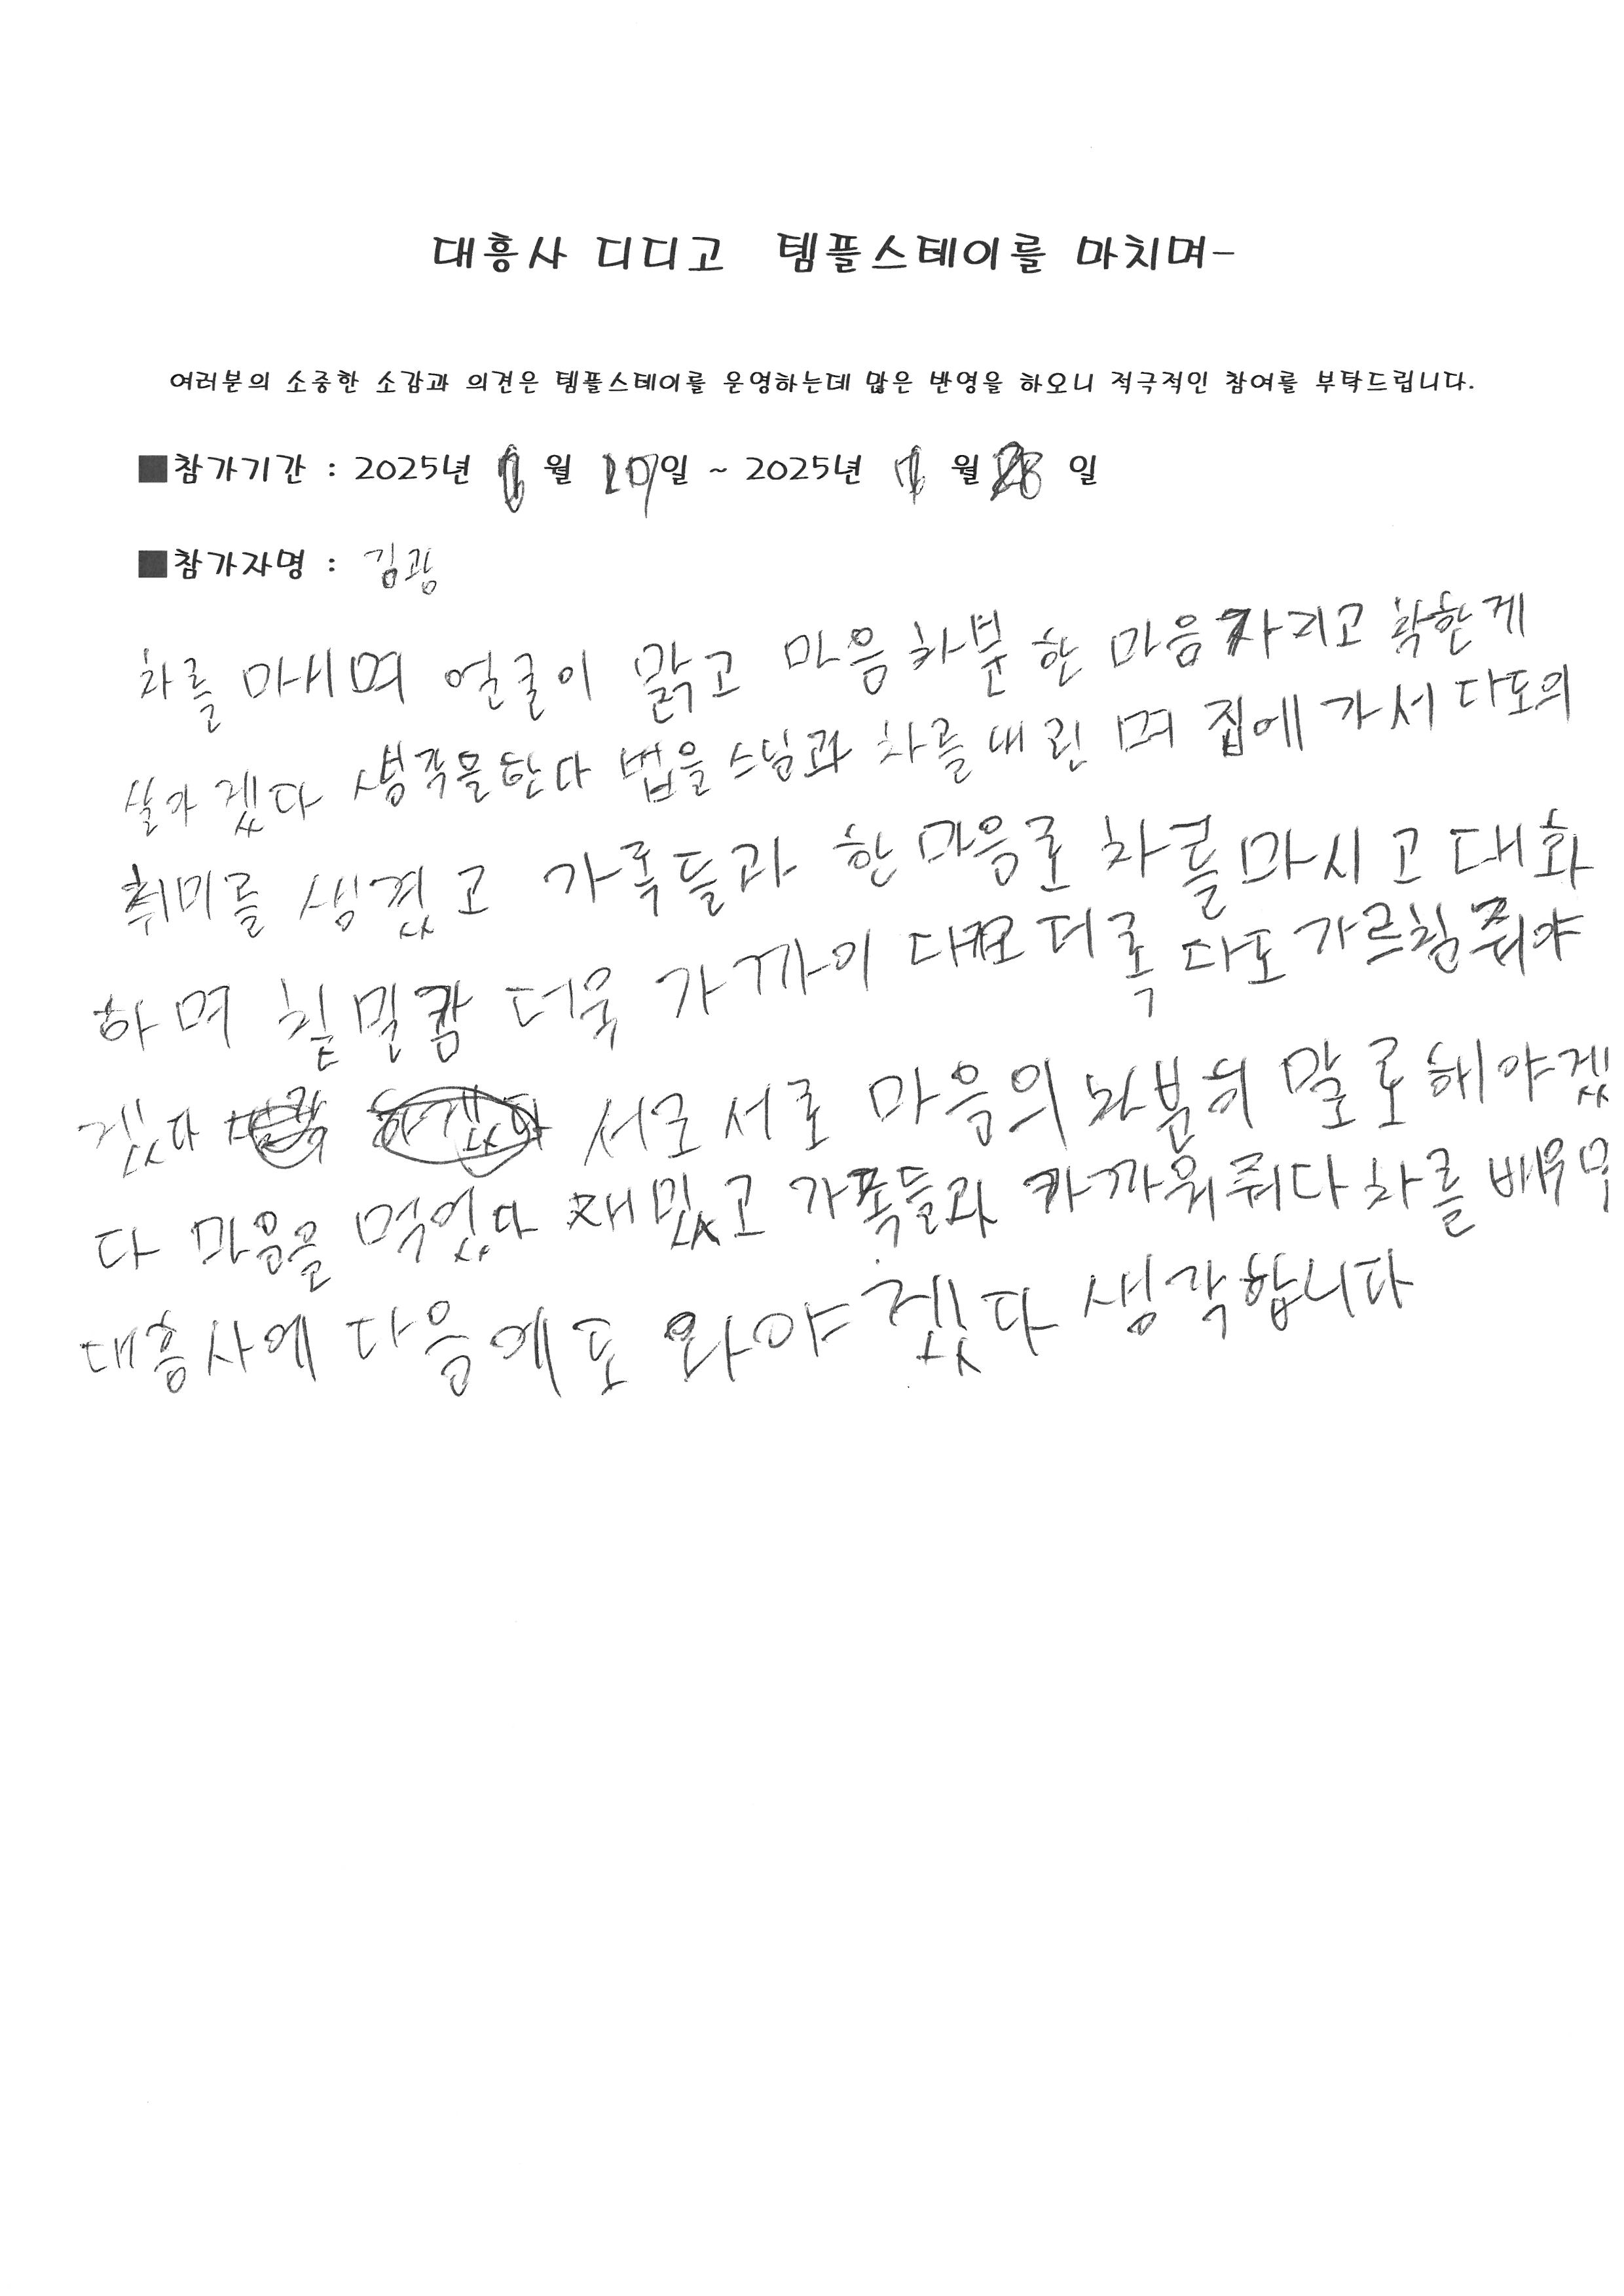 대흥사 디디고 템플스테이를 마치며-
여러분의 소중한 소감과 의견은 템플스테이를 운영하는데 많은 반영을 하오니 적극적인 참여를 부탁드립니다.
■참가기간 : 2025년 월 일 ~ 2025년 월 28 일
■참가자명 : 김광
차를 마시며 얼굴이 맑고 마음차분 한 마음 자리고 착한게
살가겠다 생각을한다 법을스님과 차를 내린며 집에 가서 다도의
취미를 생겼고 가족들과 한 마음로 차를 마시고 대화
하며 칱밀캄 더욱 가까이 더록 다도 가르침줘야
겠다 서로 서로 마음의 차분히 말로 해야겠
다 마음을 먹었다 재밌고 가족들과 카까워줘다 차를 배우며
대흥사에 다음에도 와야겠다 생각합니다